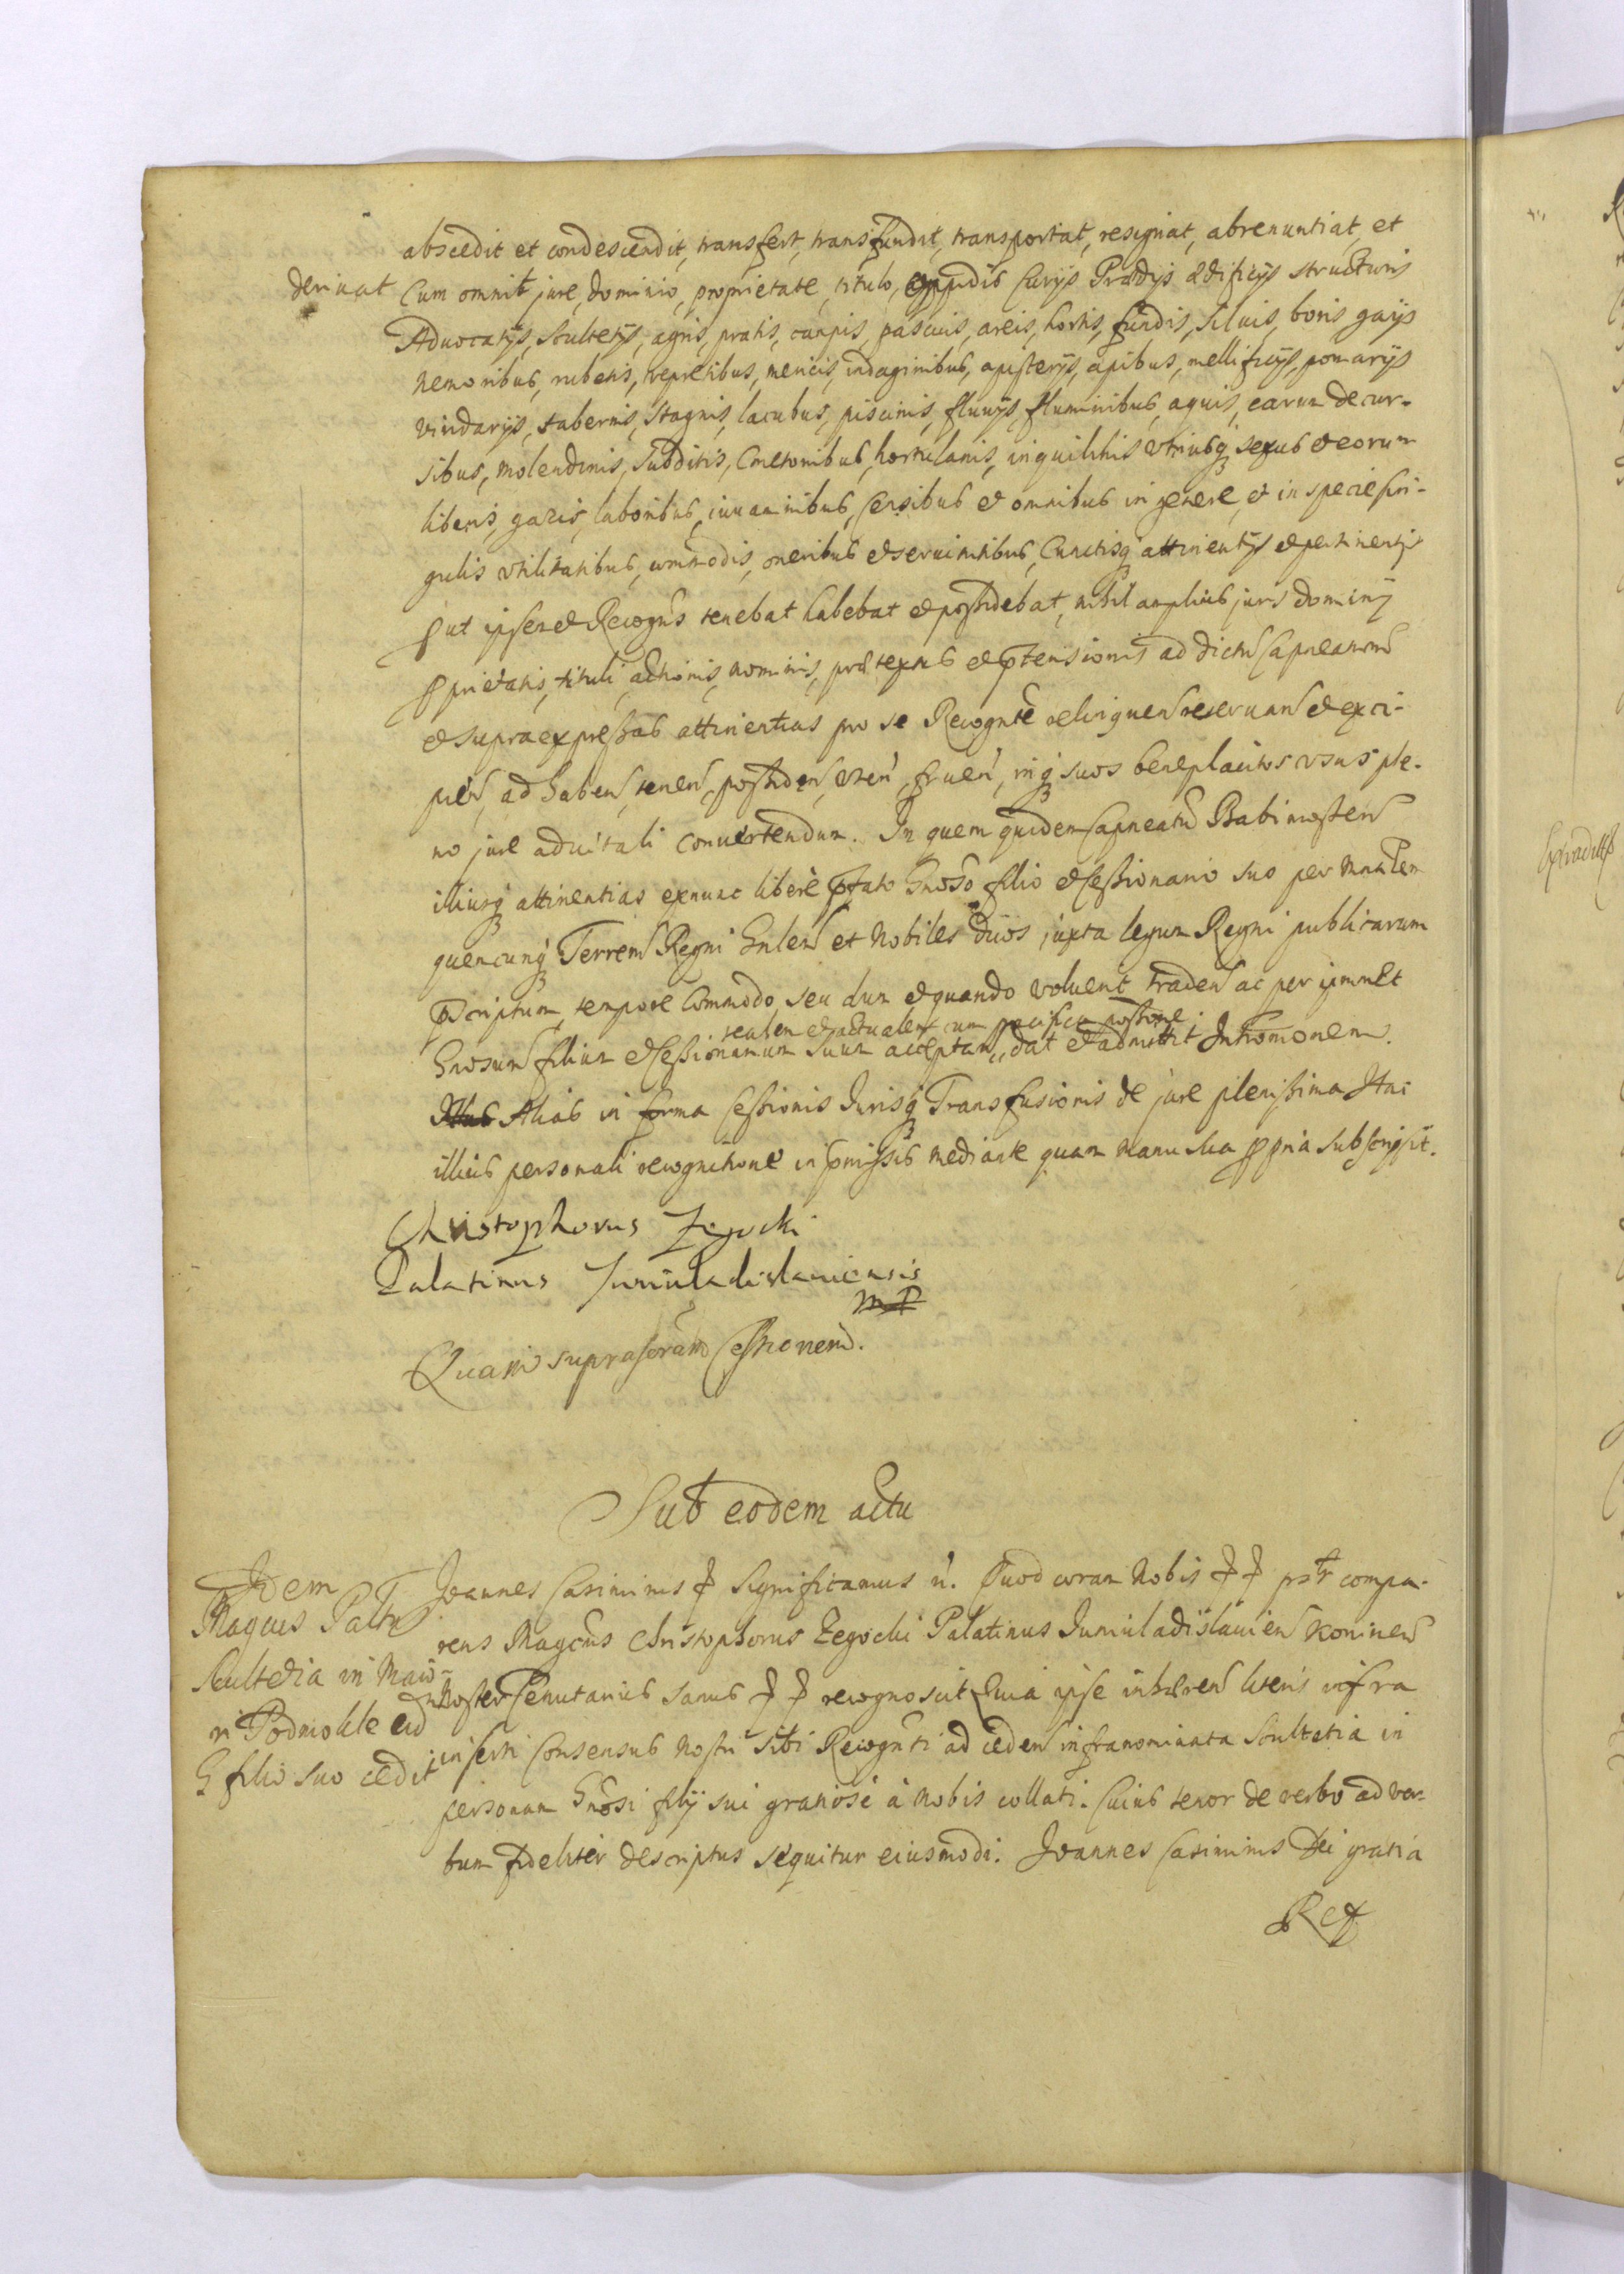 abscedit et condescendit, transfert, transfundit, transportat, resignat, abrenuntiat, et
deriuat Cum omnib jure, dominio, proprietate, titulo, Oppidis Curijs Prædijs ædificijs structuris
Aduocatijs, Scultetijs, agris, pratis, campis, pascuis, areis, hortis, fundis, siluis, boris gaijs
nemoribus, rubetis, vepretibus, mericis, indaginibus, apisterijs, apibus, mellificijs, pomarijs
viridarijs, tabernis, stagnis, lacubus, piscinis, fluuijs, fluminibus, aquis, earum decur-
sibus, molendinis, subditis, Cmetonibus, hortulanis, inquilinis vtriusq sexus et eorum
liberis, gazis, laboribus, iuuaminibus, Censibus et omnibus in genere, et in specie sin-
gulis vtilitatibus, commodis, oneribus et seruitutibus, Cunctisq attinentijs et pertinentijs
put ipsemet Recogns tenebat habebat et possidebat, nihil amplius juris dominij
pprietatis, tituli, actionis, nominis, prætextus et ptensionis ad dictu Capneatum
et supraexpressas attinentias pro se Recognte relinquen reseruan et exci-
pien, ad haben, tenen, possiden, vten, fruen, inq suos beneplacitos vsus ple-
no jure aduitali conuertendum. In quem quidem Capneatu Babimosten
illiusq attinentias exnunc liberè pfato Gnoso filio et Cessionario suo per Mnlem
quencunq Terren Regni Gnlem et Nobiles duos juxta legum Regni publicarum
pscriptum, tempore Commodo, seu dum et quando voluerit traden ac per ipmmet
realem et actualem cum pacifica possone
Gnosum filium et Cessionarium suum acceptan, dat et admittit Intromonem.
Alias in forma Cessionis Jurisq Transfusionis de jure plenissima Stni
illius personali recognitione in pmissis mediante quam manu sua ppria subscripsit.
Christophorus Zegocki
Palatinus Juniuladislauiensis
mp
Quam suprascram Cessionem.
Sub eodem actu
Idem
Magcus Paltn
Scultetia in Maio-
ri Podmokle eid
G filio suo cedit
Joannes Casimirus Significamus n. Quod coram Nobis pstr compa-
rens Magcus Christophorus Zegocki Palatinus Juniuladislauien Koninen
Mosten Capitaneus sanus recognoscit Quia ipse inhæren literis infra
inserti Consensus Nostri sibi Recognti ad ceden infranominata Scultetia in
personam Gnosi filij sui gratiosè à Nobis collati. Cuius tenor de verbo ad ver-
bum fideliter descriptus sequitur eiusmodi. Joannes Casimirus Dei gratia
Rex